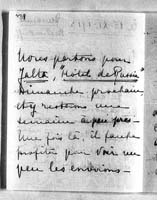 Nous partons pour
Jalta, "Hôtel de Russie"
Dimanche prochain
et y restons une
semaine à peu près -
Une fois là, il faudra
profiter pour voir un
peu les environs -